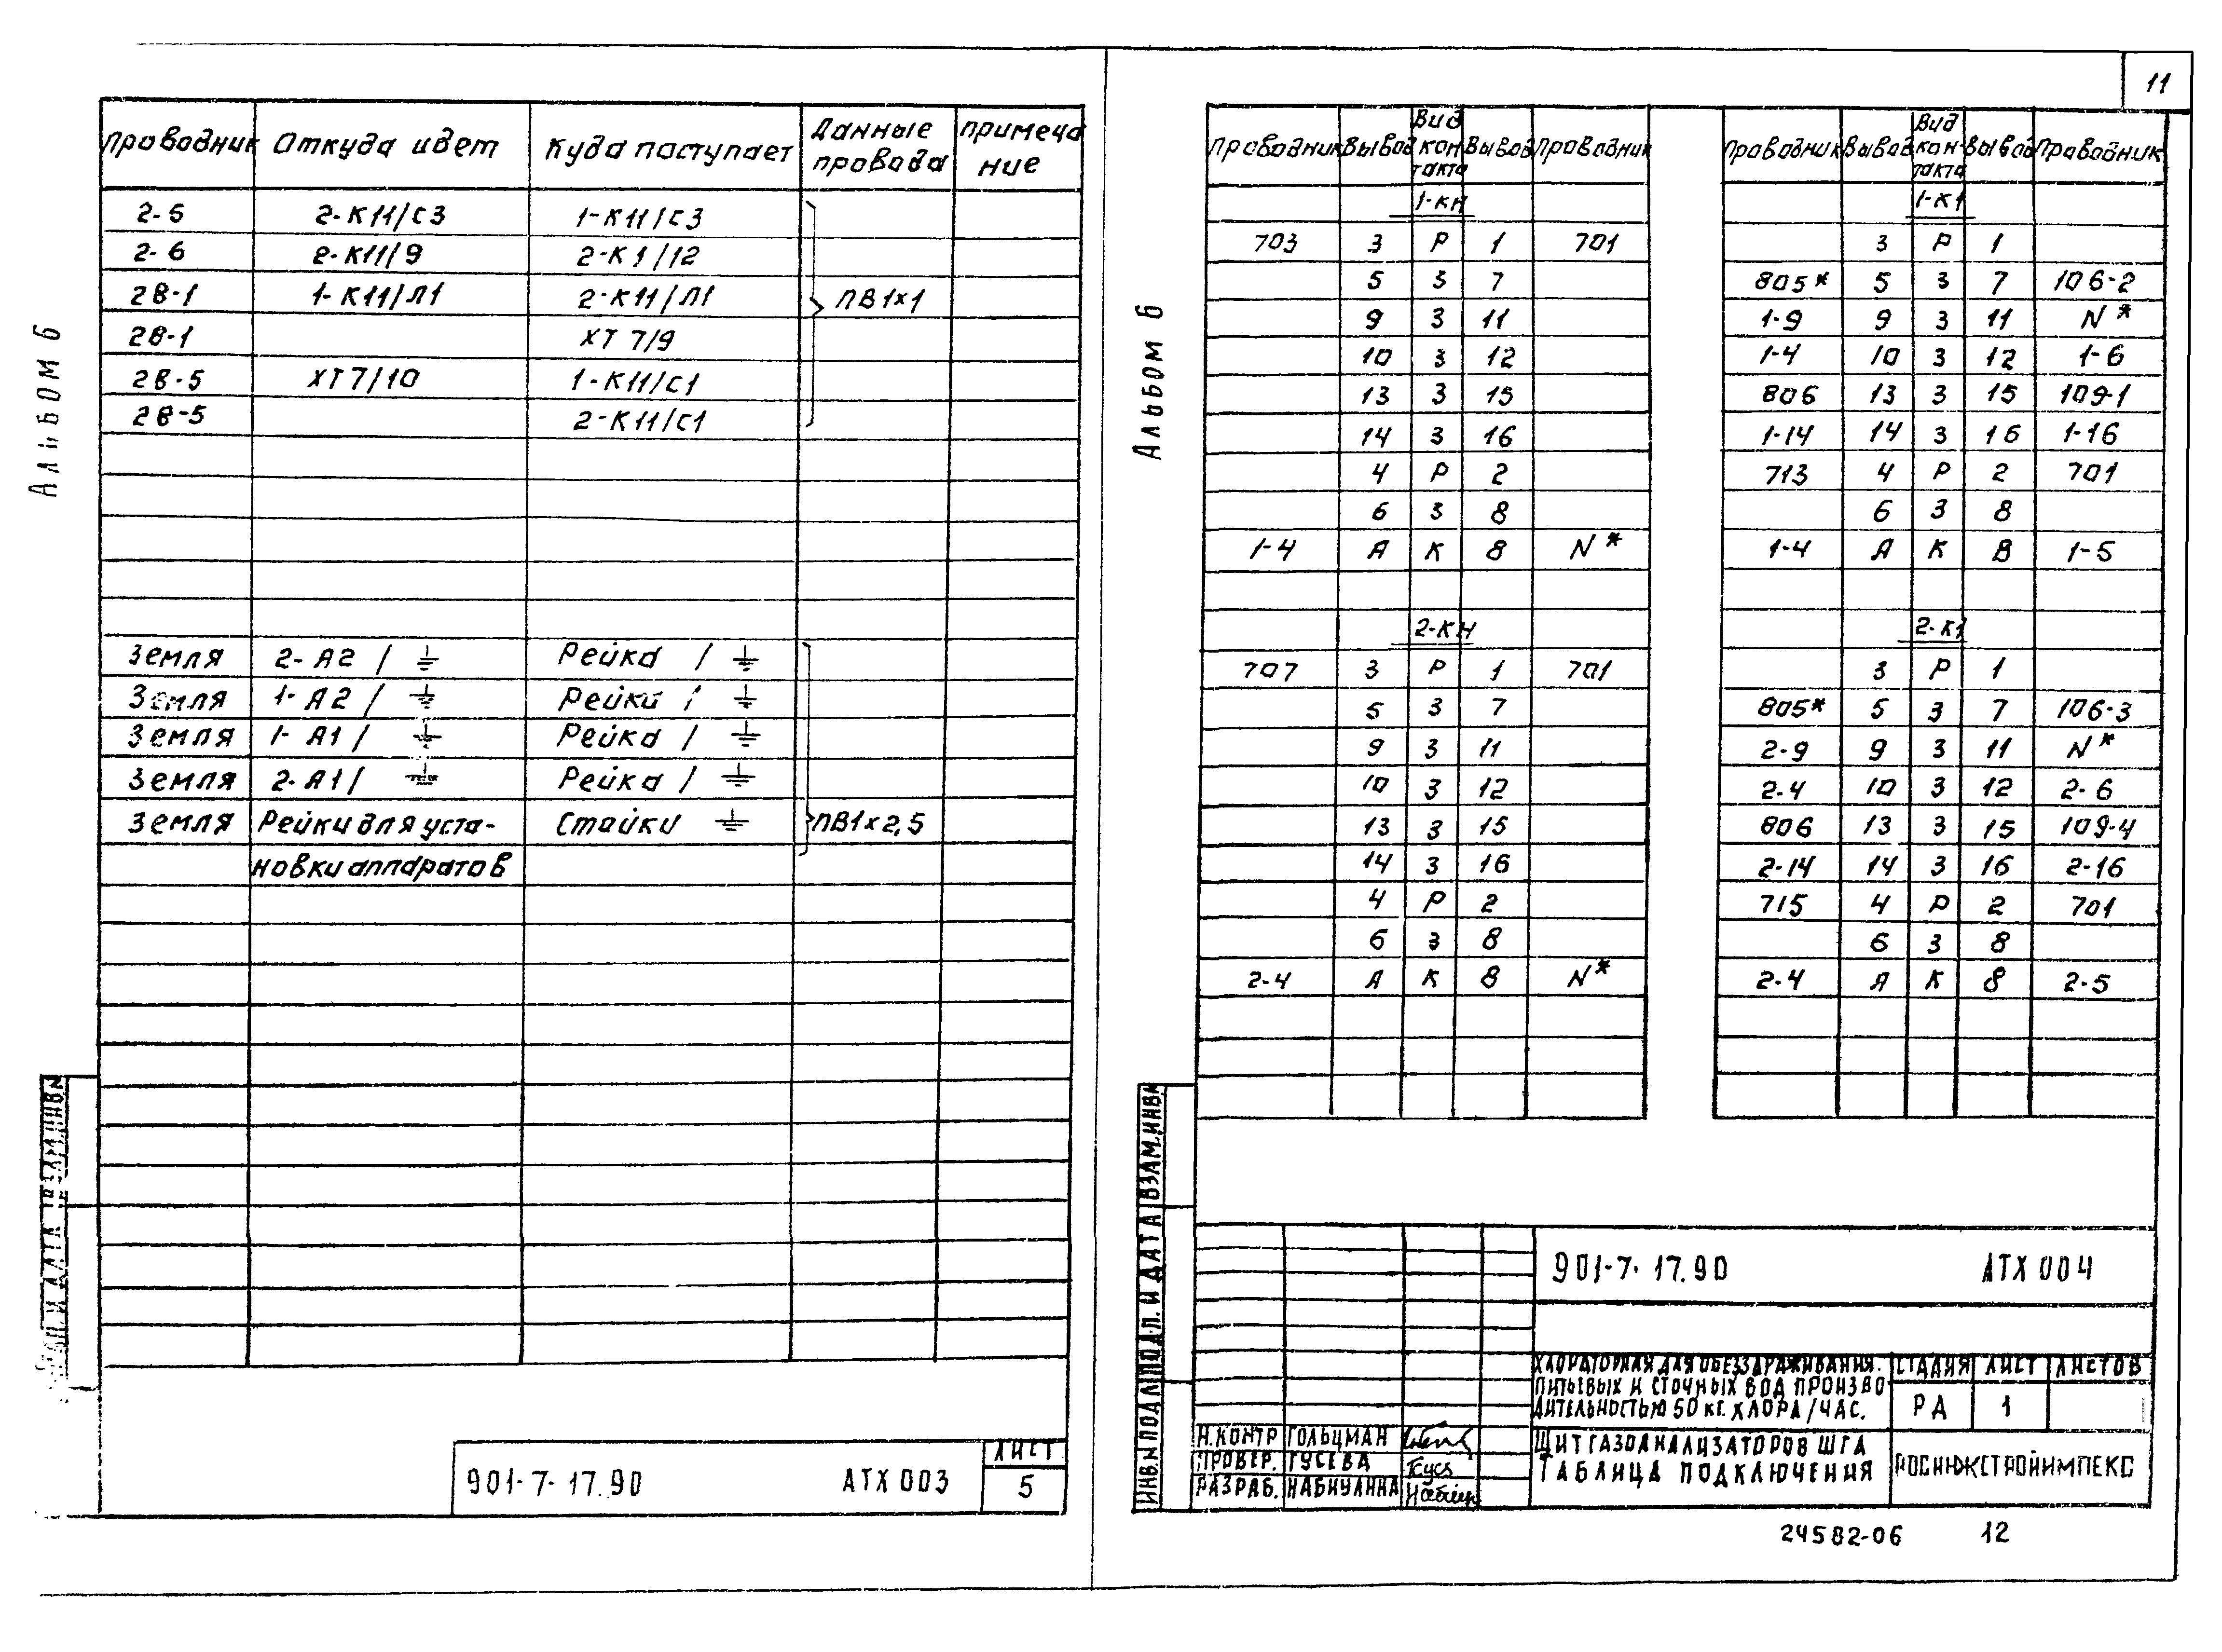 Альбом 6
Проводник Откуда идет Куда поступает Данные провода Примечание
2-5 2-К11/С3 1-К11/С3
2-6 2-К11/9 2-К1/12
2В-1 1-К11/Л1 2-К11/Л1 ПВ1×1
2В-1 ХТ 7/9
2В-5 ХТ7/10 1-К11/С1
2В-5 2-К11/С1
Земля 2-А2 / ⏚ Рейка / ⏚
Земля 1-А2 / ⏚ Рейка / ⏚
Земля 1-А1 / ⏚ Рейка / ⏚
Земля 2-А1 / ⏚ Рейка / ⏚
Земля Рейки для уста- Стойки ⏚ ПВ1×2,5
новки аппаратов
901-7-17.90 АТХ 003
ЛИСТ
5
11
Альбом 6
Проводник Вывод Вид контакта Вывод Проводник
1-КН
703 3 Р 1 701
5 З 7
9 З 11
10 З 12
13 З 15
14 З 16
4 Р 2
6 З 8
1-4 А К В N*
2-КН
707 3 Р 1 701
5 З 7
9 З 11
10 З 12
13 З 15
14 З 16
4 Р 2
6 З 8
2-4 А К В N*
Проводник Вывод Вид контакта Вывод Проводник
1-К1
3 Р 1
805* 5 З 7 106-2
1-9 9 З 11 N*
1-4 10 З 12 1-6
806 13 З 15 109-1
1-14 14 З 16 1-16
713 4 Р 2 701
6 З 8
1-4 А К В 1-5
2-К1
3 Р 1
805* 5 З 7 106-3
2-9 9 З 11 N*
2-4 10 З 12 2-6
806 13 З 15 109-4
2-14 14 З 16 2-16
715 4 Р 2 701
6 З 8
2-4 А К В 2-5
ИНВ.№ПОДЛ ПОДП. И ДАТА ВЗАМ.ИНВ.№
901-7-17.90 АТХ 004
ХЛОРАТОРНАЯ ДЛЯ ОБЕЗЗАРАЖИВАНИЯ
ПИТЬЕВЫХ И СТОЧНЫХ ВОД ПРОИЗВО
ДИТЕЛЬНОСТЬЮ 50 КГ. ХЛОРА/ЧАС.
СТАДИЯ ЛИСТ ЛИСТОВ
РД 1
Н.КОНТР ГОЛЬЦМАН
ПРОВЕР. ГУСЕВА
РАЗРАБ. НАБИУЛИНА
ЩИТ ГАЗОАНАЛИЗАТОРОВ ШГА
ТАБЛИЦА ПОДКЛЮЧЕНИЯ
РОСИНЖСТРОЙИМПЕКС
24582-06 12